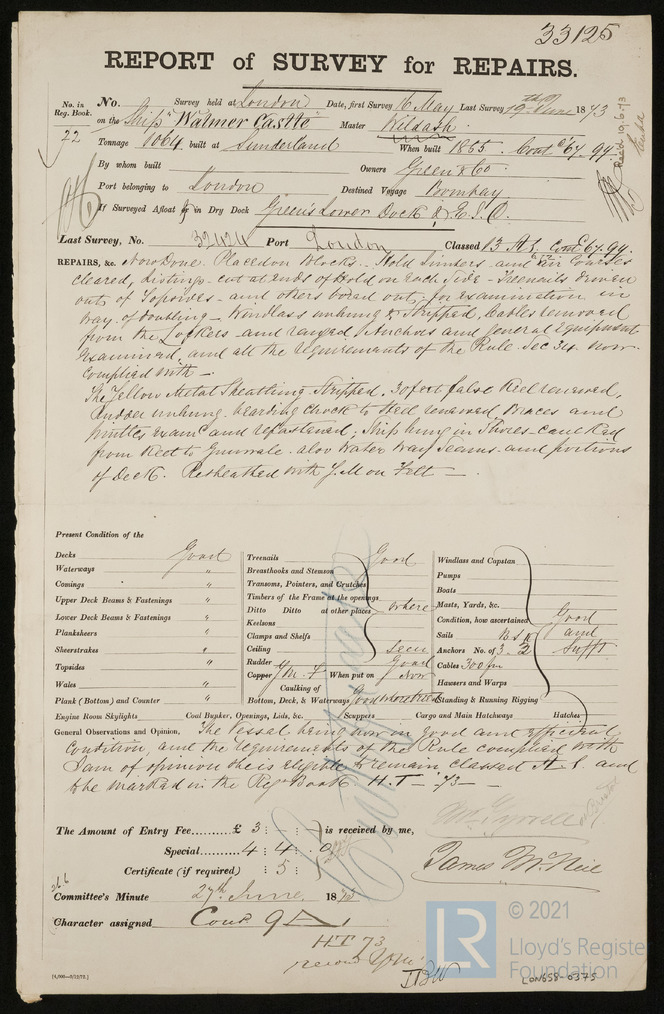 33125
REPORT of SURVEY for REPAIRS.
No. in Reg. Book. No. Survey held at London Date, first Survey 16 May Last Survey 19th June 1873
on the Ship "Walmer Castle" Master Kildash
72 Tonnage 1064 built at Sunderland When built 1855. Contd 67. 9 yr.
By whom built Owners Green & Co
Port belonging to London Destined Voyage Bombay
If Surveyed Afloat or in Dry Dock Green's Lower Dock & E.I.D.
Recd 19.6.73
Last Survey, No. 32424 Port London Classed 13 A1. Contd 67. 9 yr.
REPAIRS, &c. Now Done. Placed on blocks. Hold Timbers and Air Courses
cleared, listings cut at ends of Hold on each side - Treenails driven
out of Topsides - and others bored out, for examination in
way of doubling - Windlass unhung & stripped, Cables removed
from the Lockers - and ranged, Anchors and general Equipment
Examined, and all the requirements of the Rule Sec 34 now
complied with -
The Yellow Metal Sheathing Stripped. 30 feet false Keel renewed,
Rudder unhung, bearding chock to Heel renewed, Braces and
pintles Examd and refastened; Ship hung in Shores caulked
from Keel to Gunwale. also Water Way Seams and portions
of Deck. Resheathed with Y. M on Felt -
Present Condition of the
Decks Good
Waterways "
Comings "
Upper Deck Beams & Fastenings "
Lower Deck Beams & Fastenings "
Planksheers "
Sheerstrakes "
Topsides "
Wales "
Plank (Bottom) and Counter "
Engine Room Skylights
Treenails Good
Breasthooks and Stemson
Transoms, Pointers, and Crutches
Timbers of the Frame at the openings
Ditto Ditto at other places where
Keelsons
Clamps and Shelfs
Ceiling seen
Rudder Good
Copper Y. M. F When put on Now
Caulking of
Bottom, Deck, & Waterways Good
Coal Bunker, Openings, Lids, &c. Scuppers
Windlass and Capstan
Pumps
Boats
Masts, Yards, &c.
Condition, how ascertained Good
Sails and
Anchors No. of 3. 2 Sufft
Cables 300 fm
Hawsers and Warps
Standing & Running Rigging
Cargo and Main Hatchways Hatches
General Observations and Opinion, The Vessel being now in good and efficient
Condition, and the requirements of the Rule complied with
I am of opinion she is eligible to remain classed A 1. and
to be marked in the Reg. Book H.T - 73 -
The Amount of Entry Fee £ 3 : : is received by me,
Special 4 : 4 : 0
Certificate (if required) : 5 :
James McNeil
26.6
Committee's Minute 27th June. 1873
Character assigned Contd 9 A 1
H T 73
[4,000—9/12/72.]
LR
© 2021
Lloyd's Register
Foundation
LON658-0375